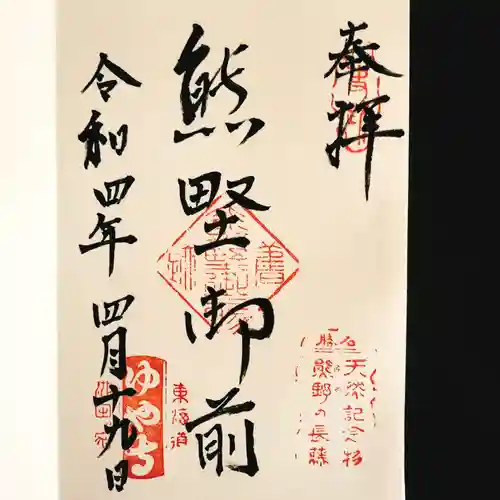 奉拝
熊野御前
令和四年四月十九日
名勝
天然記念物
熊野の長藤
東海道
池田宿
ゆや寺